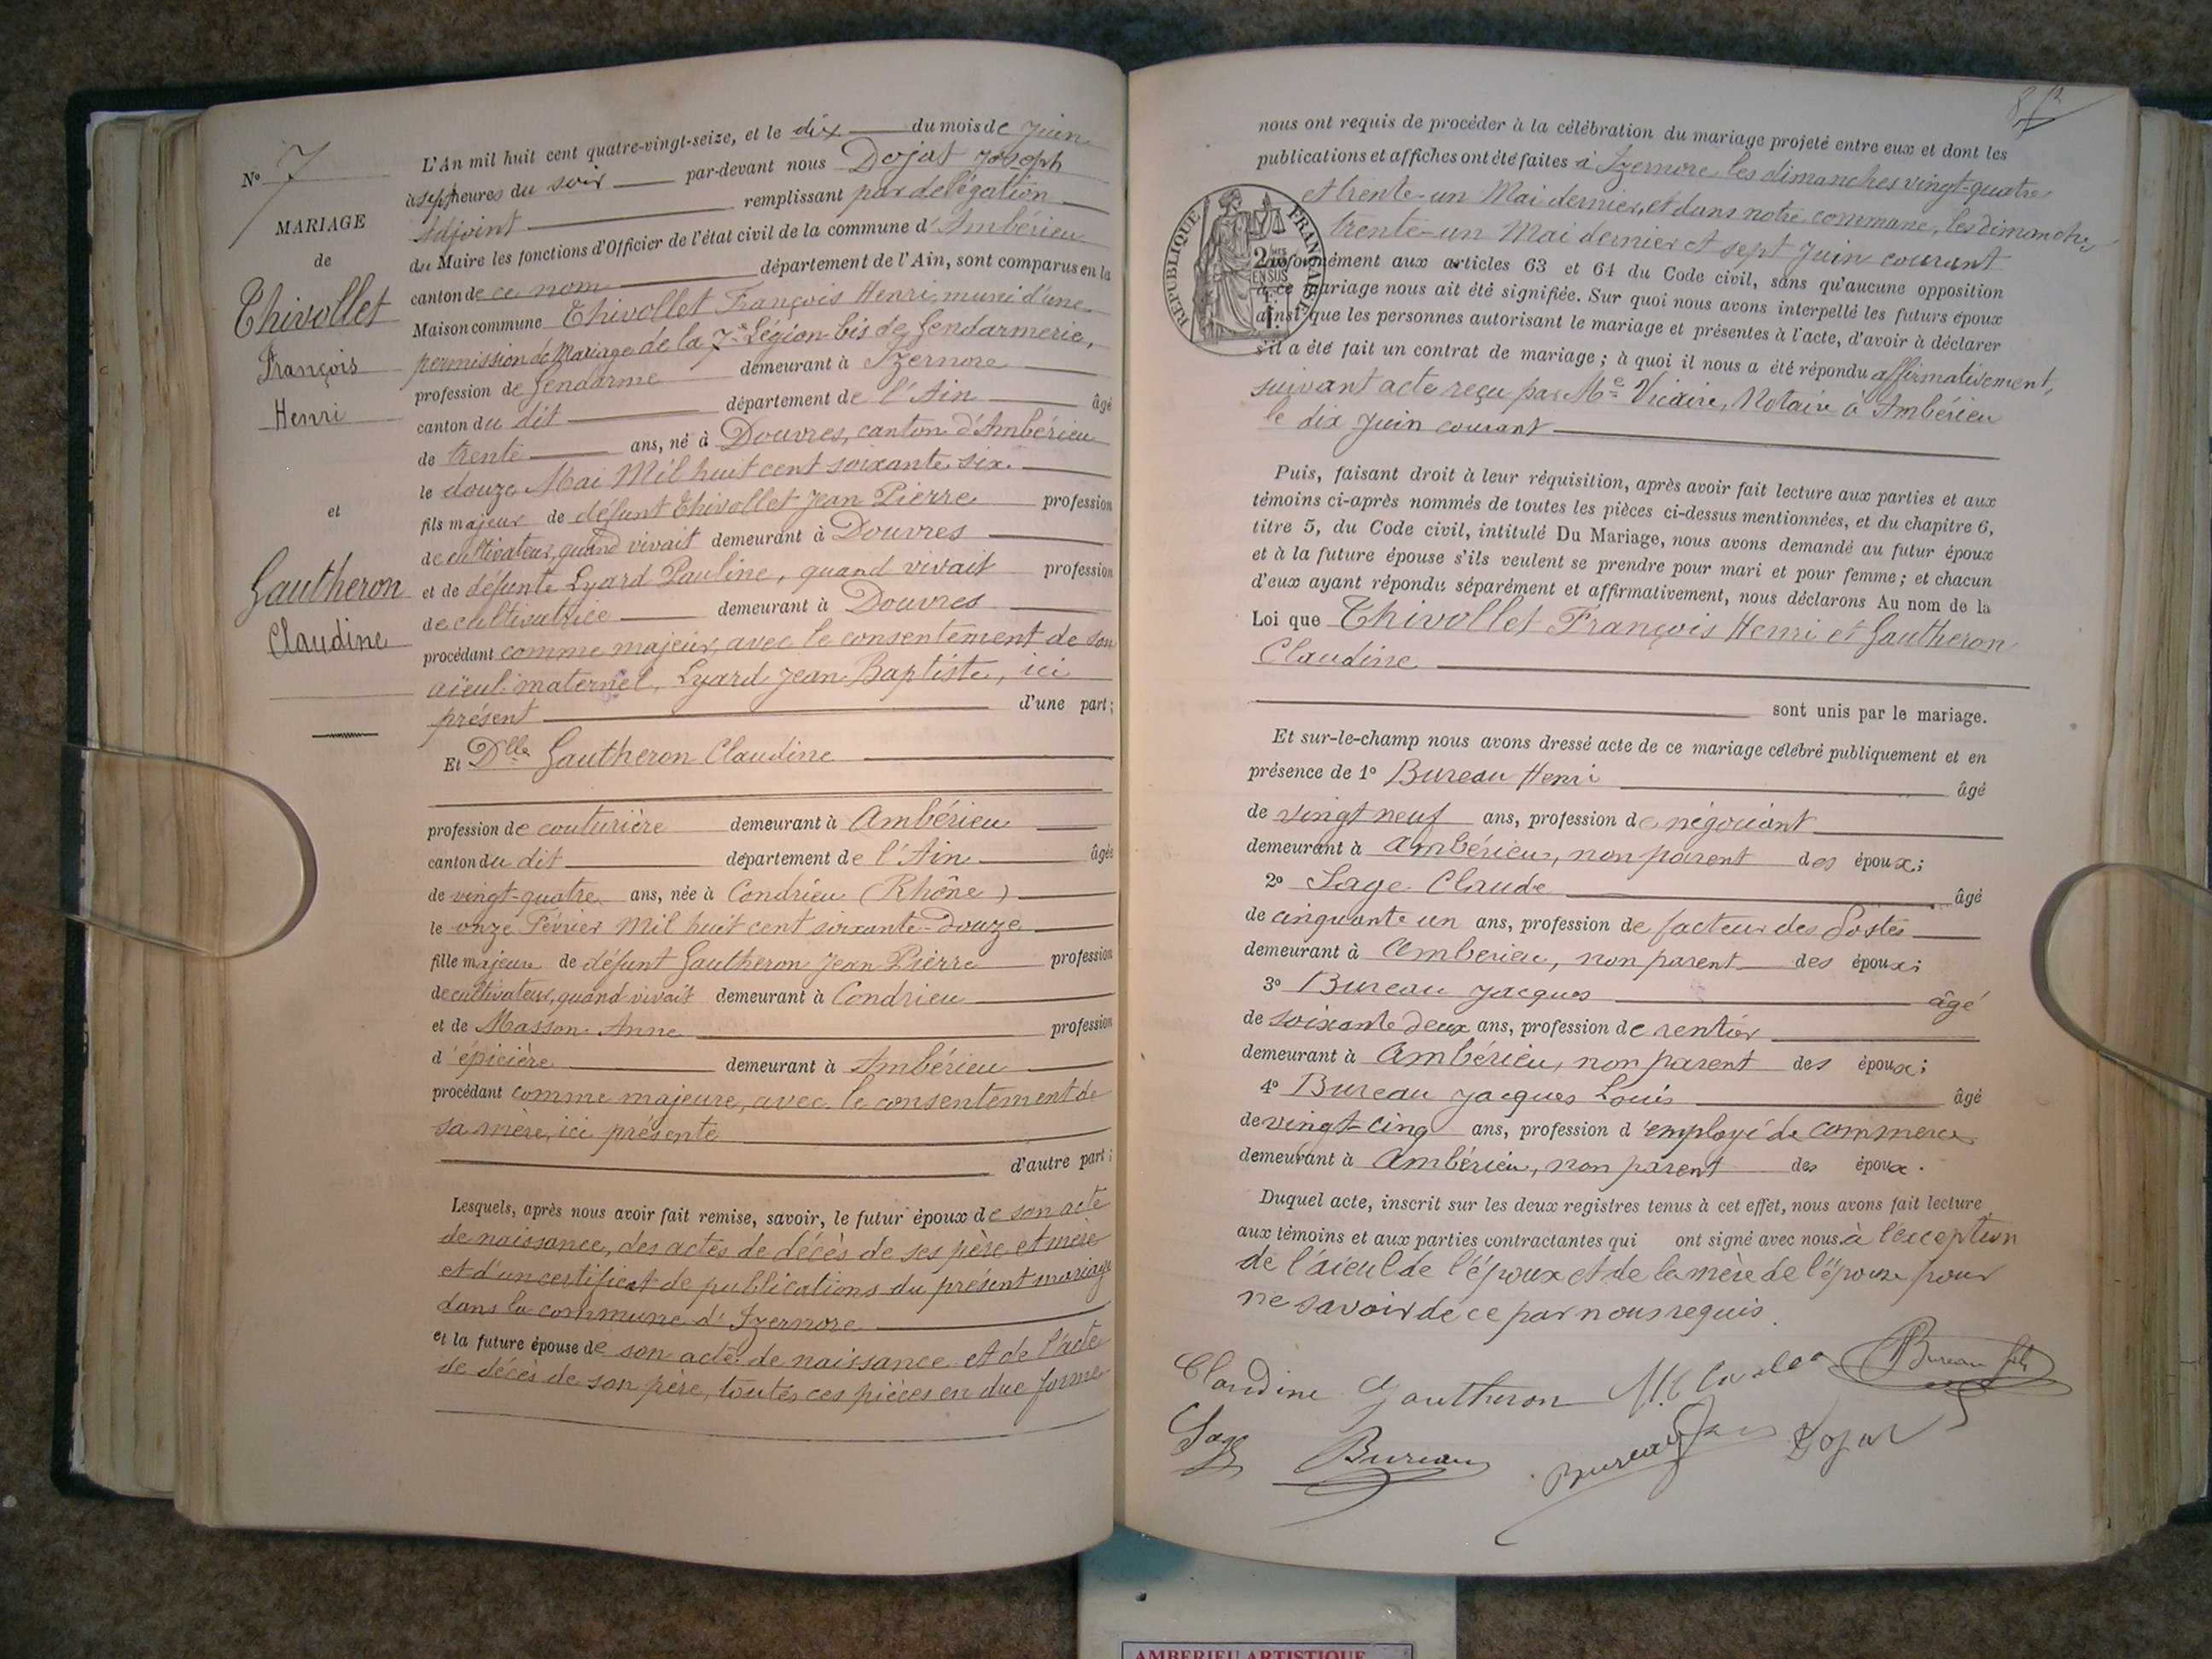 N° 7
MARIAGE
de
Thivollet
François
Henri
et
Gautheron
Claudine
L'An mil huit cent quatre-vingt-seize, et le dix du mois de Juin
à sept heures du soir par-devant nous Dojat Joseph
Adjoint remplissant par délégation
du Maire les fonctions d'Officier de l'état civil de la commune d'Ambérieu
canton de ce nom département de l'Ain, sont comparus en la
Maison commune Thivollet François Henri, muni d'une
permission de Mariage de la 7e Légion bis de Gendarmerie,
profession de Gendarme demeurant à Izernore
canton du dit département de l'Ain âgé
de trente ans, né à Douvres, canton d'Ambérieu
le douze Mai Mil huit cent soixante six.
fils majeur de défunt Thivollet Jean Pierre profession
de cultivateur, quand vivait demeurant à Douvres
et de défunte Lyard Pauline, quand vivait profession
de cultivatrice demeurant à Douvres
procédant comme majeur, avec le consentement de son
aïeul maternel, Lyard Jean Baptiste, ici
présent d'une part;
Et Dlle Gautheron Claudine
profession de couturière demeurant à Ambérieu
canton du dit département de l'Ain âgée
de vingt-quatre ans, née à Condrieu (Rhône)
le onze Février Mil huit cent soixante-Douze
fille majeure de défunt Gautheron Jean Pierre profession
de cultivateur, quand vivait demeurant à Condrieu
et de Masson Anne profession
d'épicière demeurant à Ambérieu
procédant comme majeure, avec le consentement de
sa mère, ici présente
d'autre part;
Lesquels, après nous avoir fait remise, savoir, le futur époux de son acte
de naissance, des actes de décès de ses père et mère
et d'un certificat de publications du présent mariage
dans la commune d'Izernore
et la future épouse de son acte de naissance et de l'acte
de décès de son père, toutes ces pièces en due forme
nous ont requis de procéder à la célébration du mariage projeté entre eux et dont les
publications et affiches ont été faites à Izernore les dimanches vingt-quatre
et trente-un Mai dernier, et dans notre commune, les dimanches
trente-un Mai dernier et sept Juin courant
conformément aux articles 63 et 64 du Code civil, sans qu'aucune opposition
à ce mariage nous ait été signifiée. Sur quoi nous avons interpellé les futurs époux
ainsi que les personnes autorisant le mariage et présentes à l'acte, d'avoir à déclarer
s'il a été fait un contrat de mariage; à quoi il nous a été répondu affirmativement,
suivant acte reçu par Me Vicaire, Notaire à Ambérieu
le dix Juin courant
RÉPUBLIQUE FRANÇAISE
Puis, faisant droit à leur réquisition, après avoir fait lecture aux parties et aux
témoins ci-après nommés de toutes les pièces ci-dessus mentionnées, et du chapitre 6,
titre 5, du Code civil, intitulé Du Mariage, nous avons demandé au futur époux
et à la future épouse s'ils veulent se prendre pour mari et pour femme; et chacun
d'eux ayant répondu séparément et affirmativement, nous déclarons Au nom de la
Loi que Thivollet François Henri et Gautheron
Claudine
sont unis par le mariage.
Et sur-le-champ nous avons dressé acte de ce mariage célébré publiquement et en
présence de 1° Bureau Henri âgé
de vingt neuf ans, profession de négociant
demeurant à Ambérieu, non parent des époux;
2° Sage Claude âgé
de cinquante un ans, profession de facteur des Postes
demeurant à Ambérieu, non parent des époux;
3° Bureau Jacques âgé
de soixante deux ans, profession de rentier
demeurant à Ambérieu, non parent des époux;
4° Bureau Jacques Louis âgé
de vingt-cinq ans, profession d'employé de commerce
demeurant à Ambérieu, non parent des époux.
Duquel acte, inscrit sur les deux registres tenus à cet effet, nous avons fait lecture
aux témoins et aux parties contractantes qui ont signé avec nous à l'exception
de l'aïeul de l'époux et de la mère de l'épouse pour
ne savoir de ce par nous requis.
Claudine Gautheron Bureau fils
Sage Bureau Bureau Dojat
AMBERIEU ARTISTIQUE